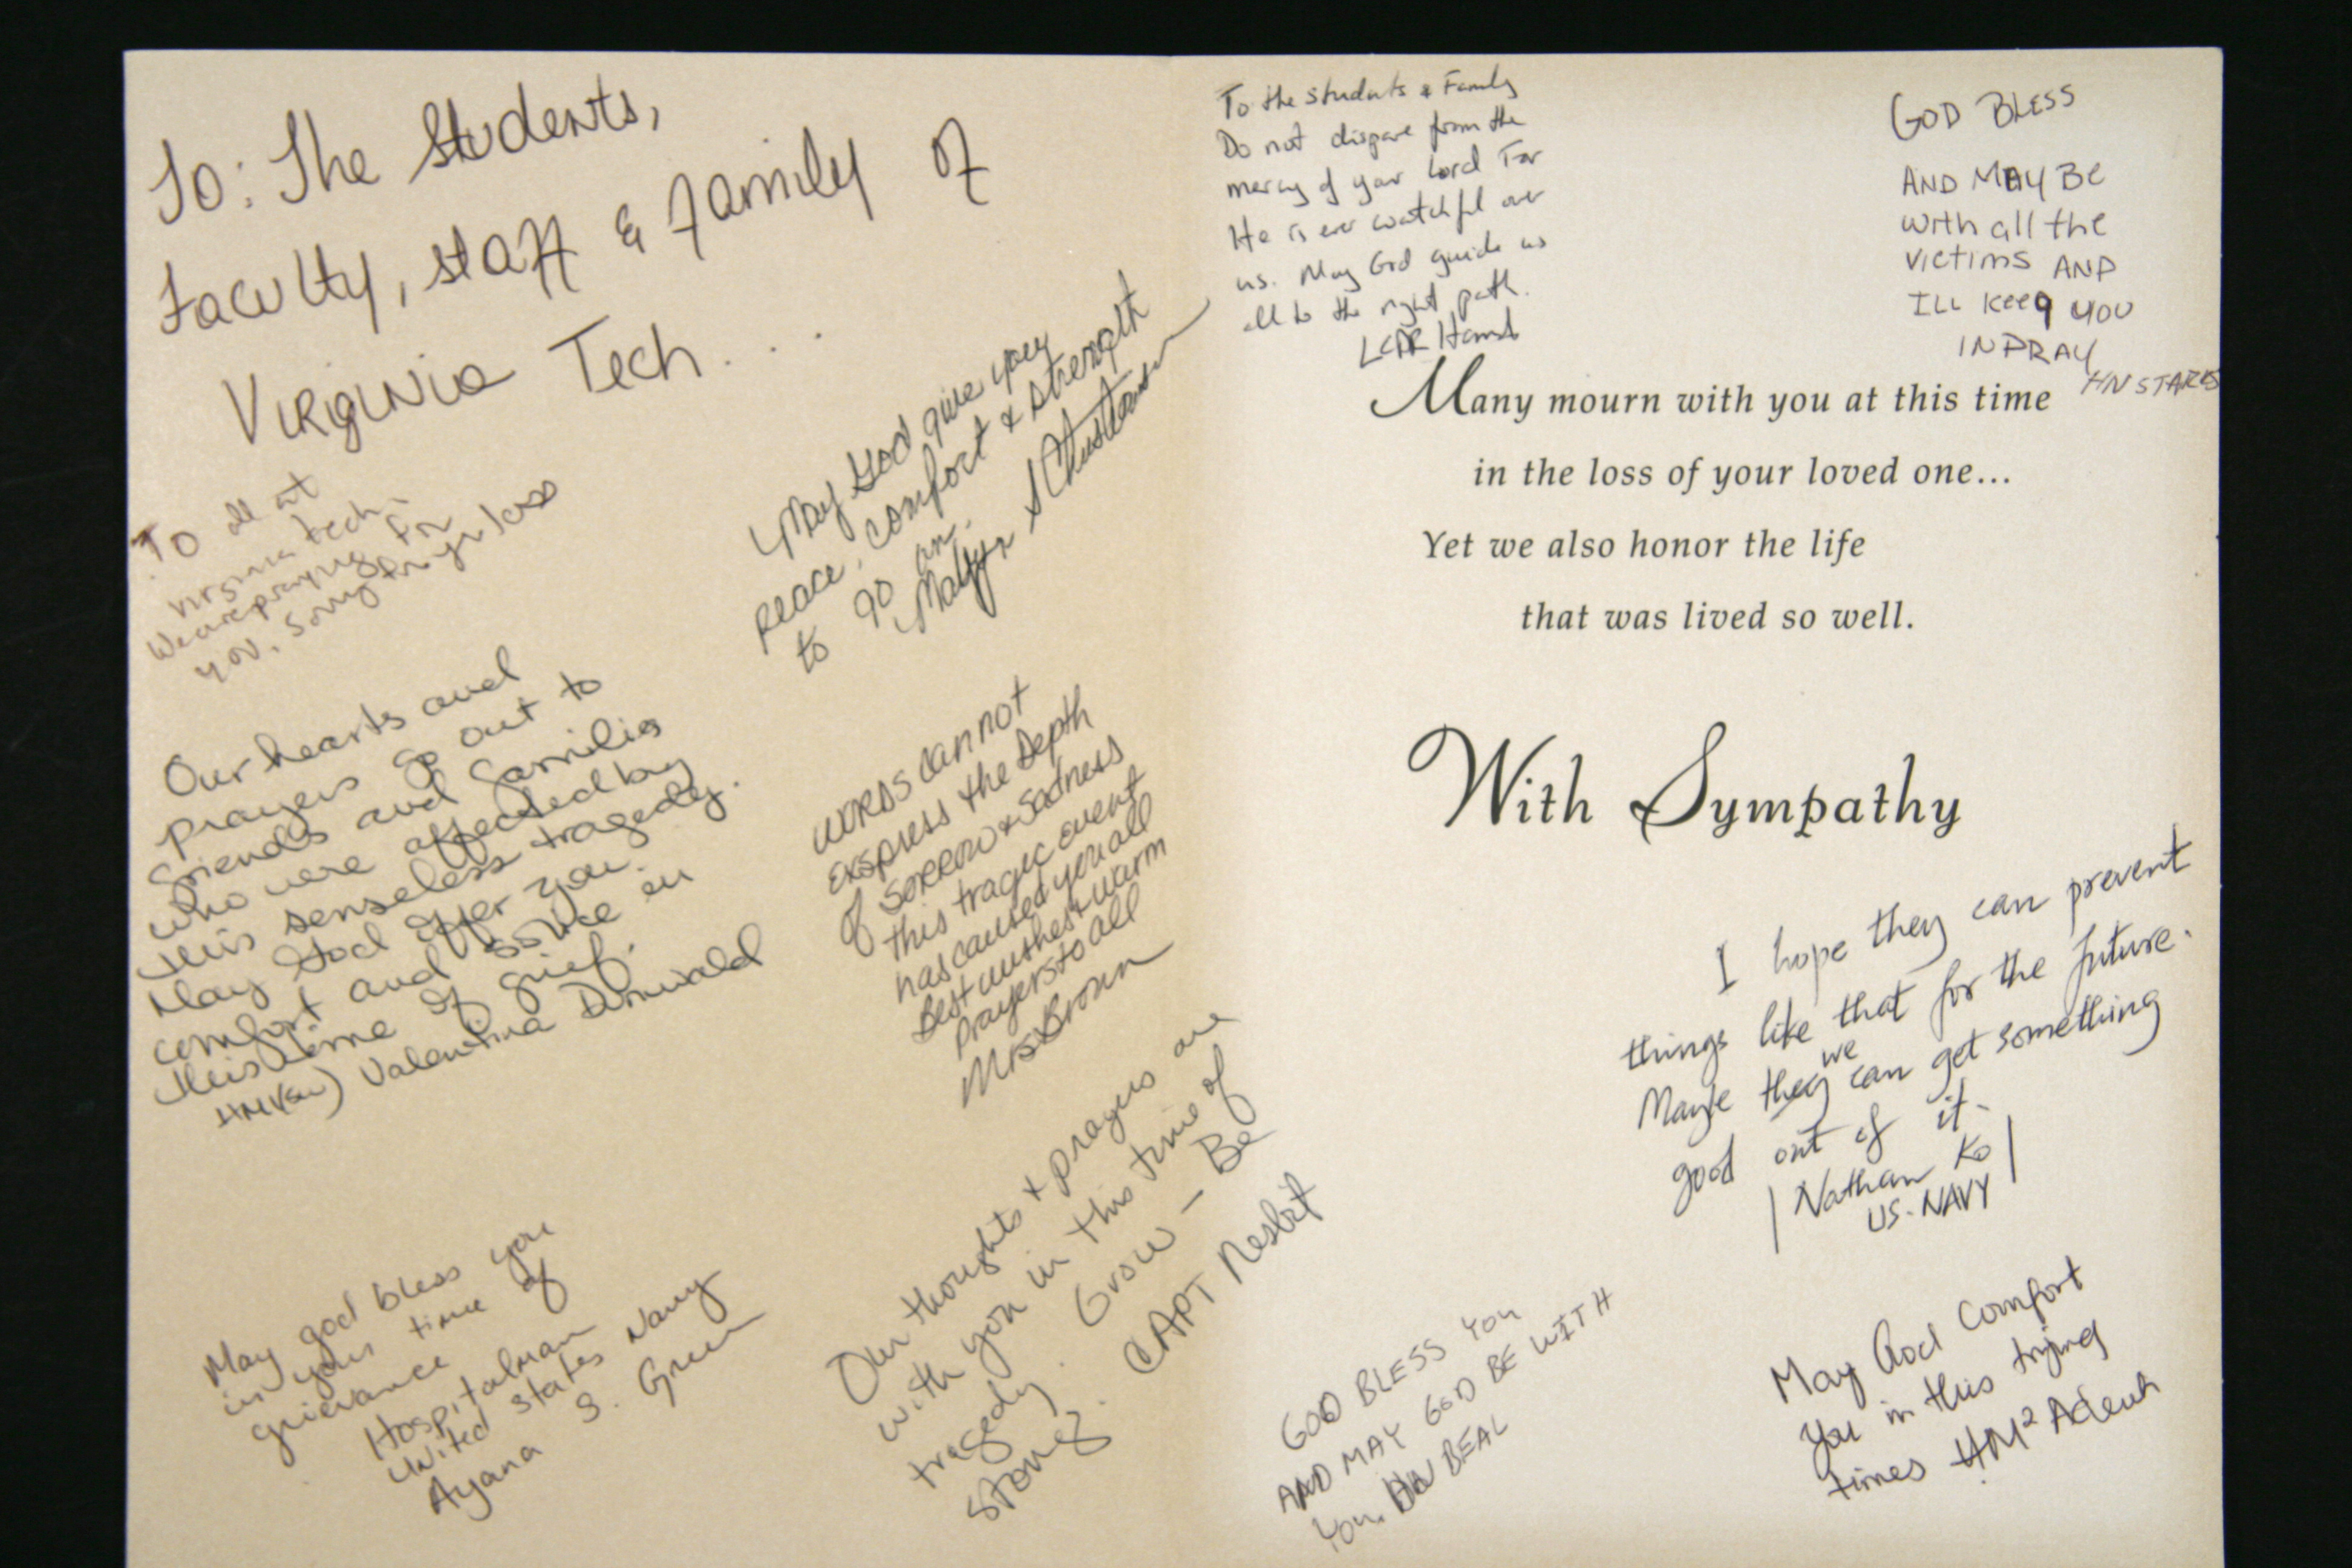 To: The Students,
Faculty, staff & family of
Virginia Tech...
To all at
Virginia tech.
We are praying for
you. Sorry for your loss
May God give you
peace, comfort & strength
to go on.
Our hearts and
prayers go out to
friends and families
who were affected by
this senseless tragedy.
May God offer you
comfort and solice in
this time of grief.
Valentina Dunwald
WORDS cannot
exspress the Depth
of SORROW & Sadness
this tragic event
has caused you all
Best wishes & warm
Prayers to all
Mrs Brown
May god bless you
in your time of
grievance
Hospitalman
United States Navy
Ayana S. Green
Our thoughts & prayers are
with you in this time of
tragedy. Grow — Be
strong. CAPT Nesbit
To the students & Family
Do not dispare from the
mercy of your Lord For
He is ever watchful over
us. May God guide us
all to the right path.
LCDR
GOD BLESS
AND MAY BE
with all the
victims AND
ILL KEEP YOU
IN PRAY
HN STARKS
Many mourn with you at this time
in the loss of your loved one...
Yet we also honor the life
that was lived so well.
With Sympathy
I hope they can prevent
things like that for the future.
Maybe they we can get something
good out of it.
Nathan Ko
US. NAVY
GOD BLESS YOU
AND MAY GOD BE WITH
You. HN BEAL
May God comfort
you in this trying
times HM2